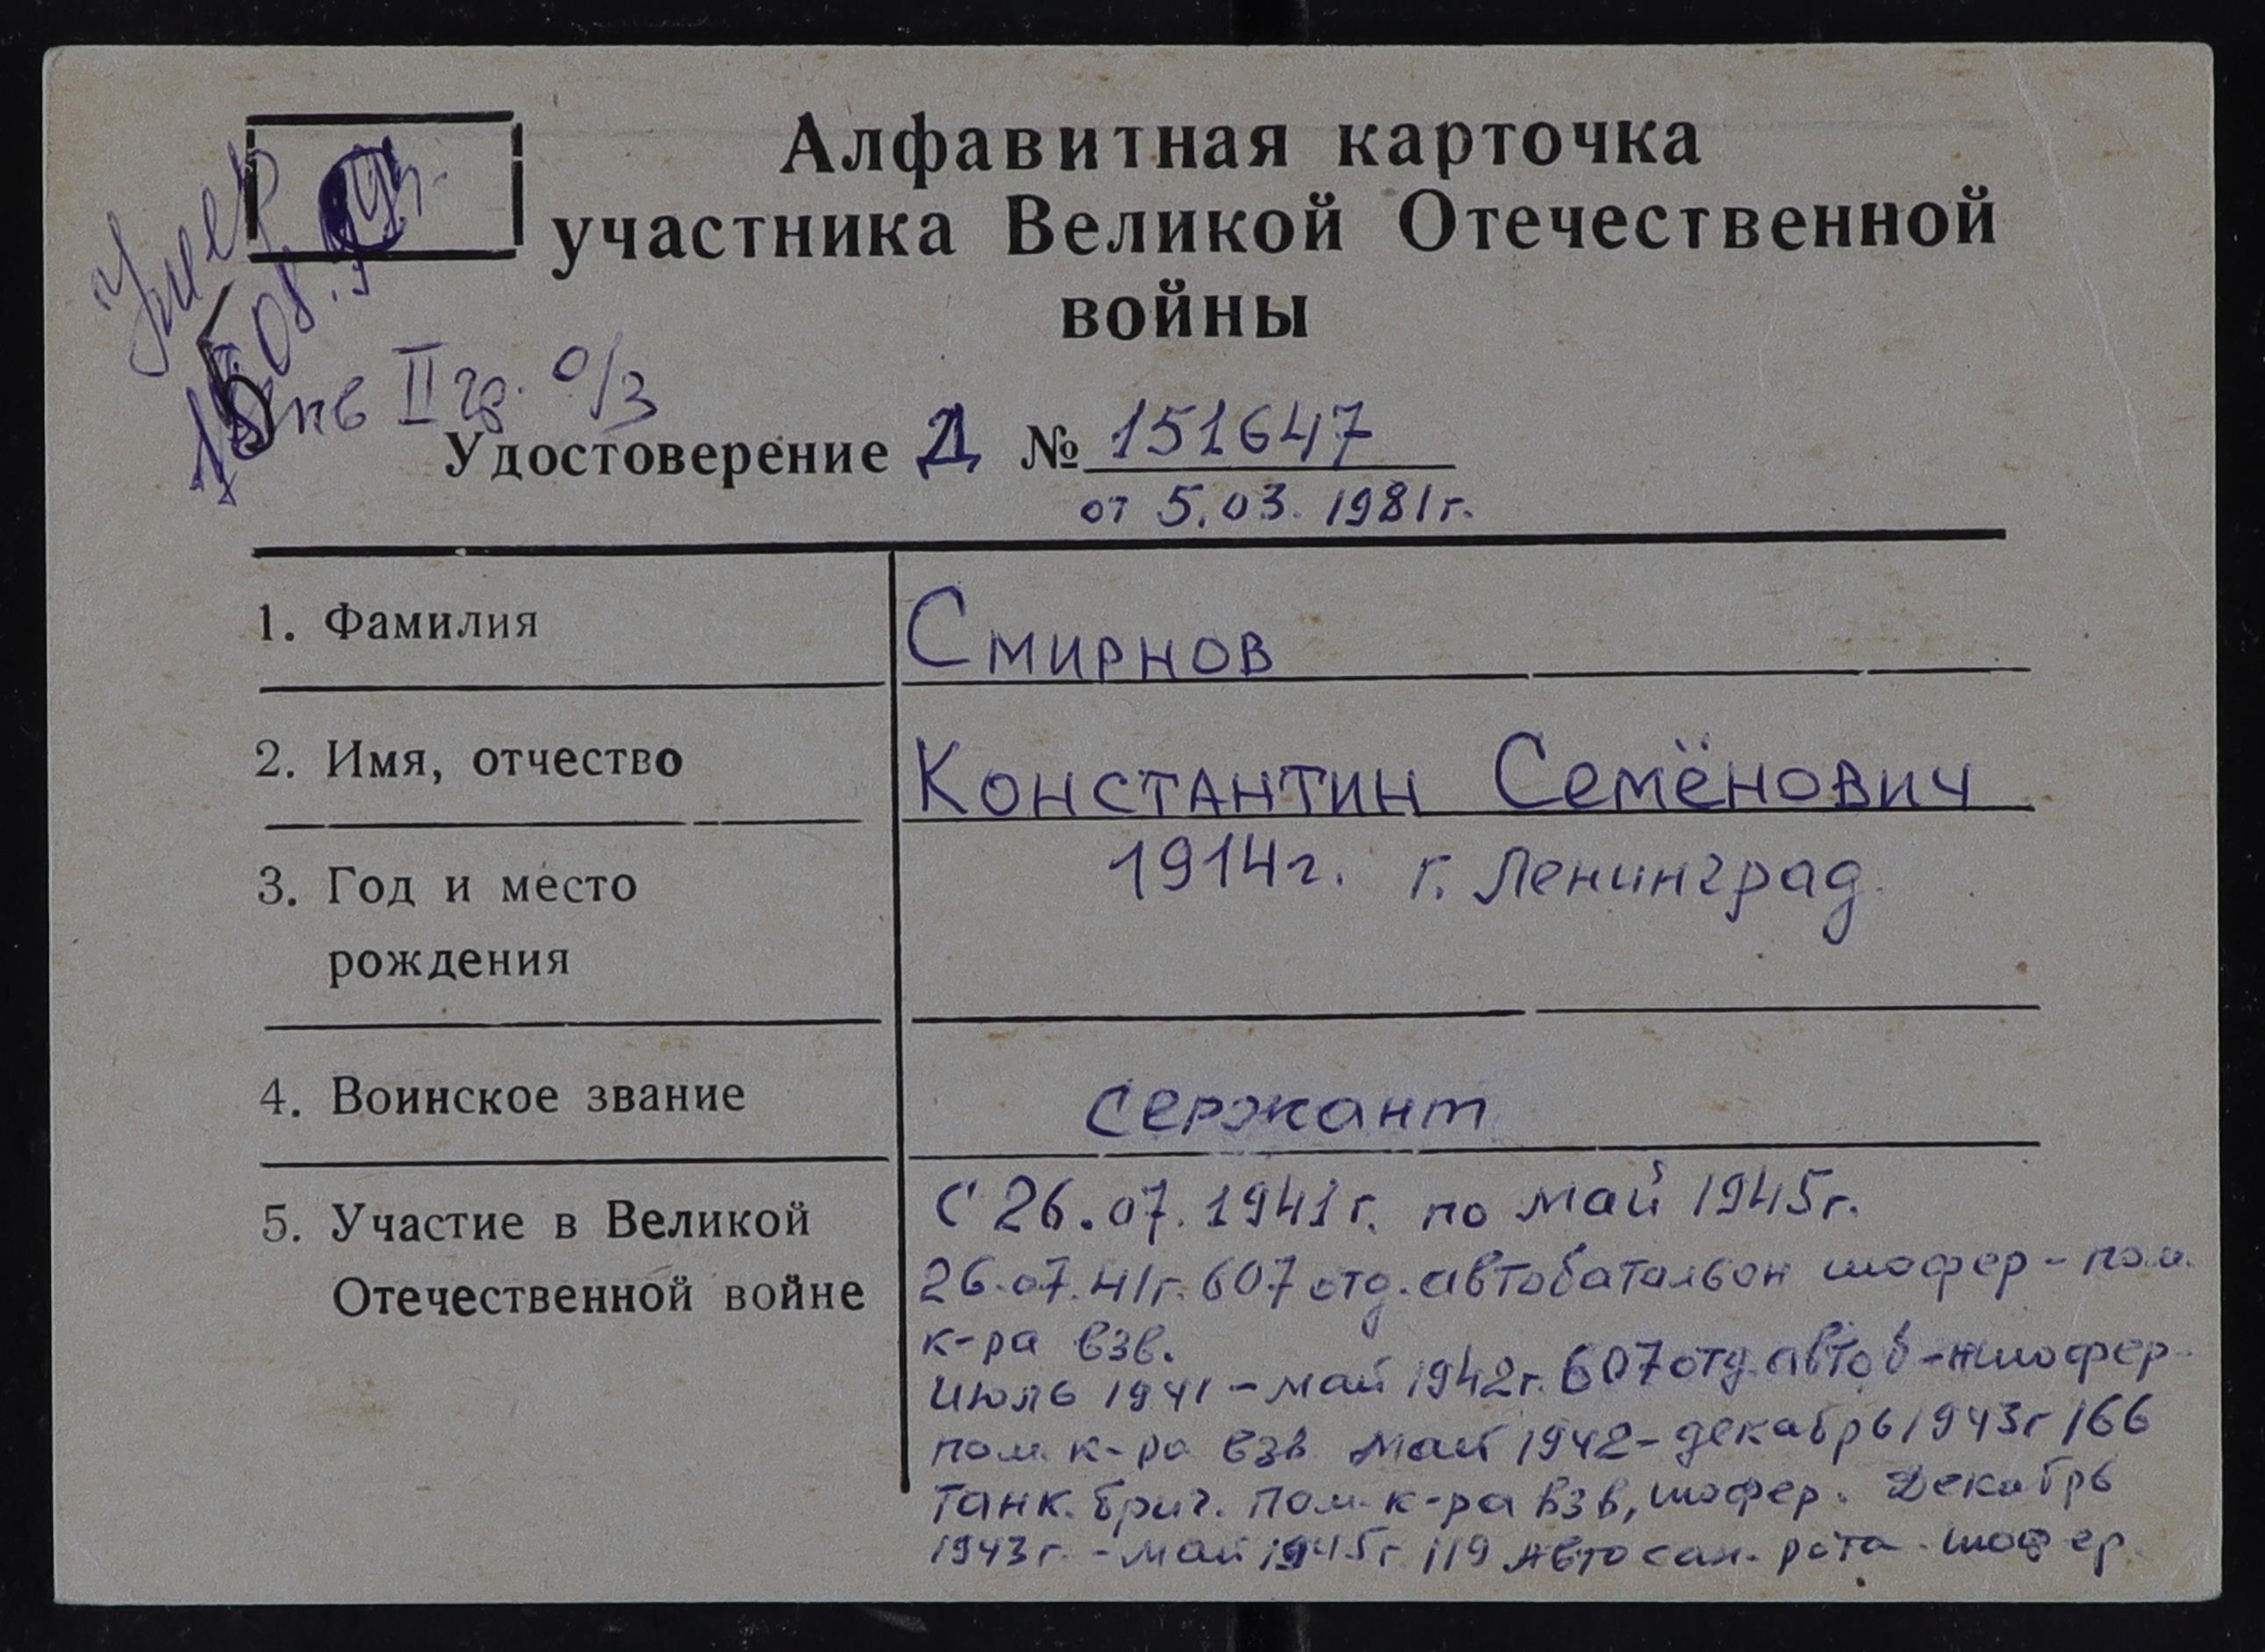 Алфавитная карточка
участника Великой Отечественной
войны
Умер
08.
II гр. о/з
Удостоверение Д № 151647
от 5.03.1981г.
1. Фамилия
Смирнов
2. Имя, отчество
Константин Семёнович
3. Год и место
рождения
1914г. г. Ленинград.
4. Воинское звание
сержант
5. Участие в Великой
Отечественной войне
С 26.07.1941г. по май 1945г.
26.07.41г. 607 отд. автобатальон шофер - пом.
к-ра взв.
Июль 1941 - май 1942г. 607 отд. автоб-н шофер-
пом. к-ра взв. Май 1942 - декабрь 1943г 166
танк. бриг. пом. к-ра взв, шофер. Декабрь
1943г. - май 1945г 119 автосан. рота. шофер